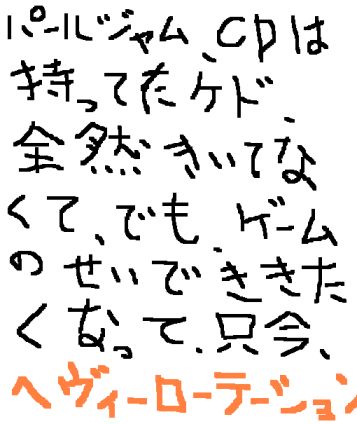 パールジャム、CDは
持ってたケド、
全然きいてな
くて、でも、ゲーム
のせいでききた
くなって、只今、
ヘヴィーローテーション